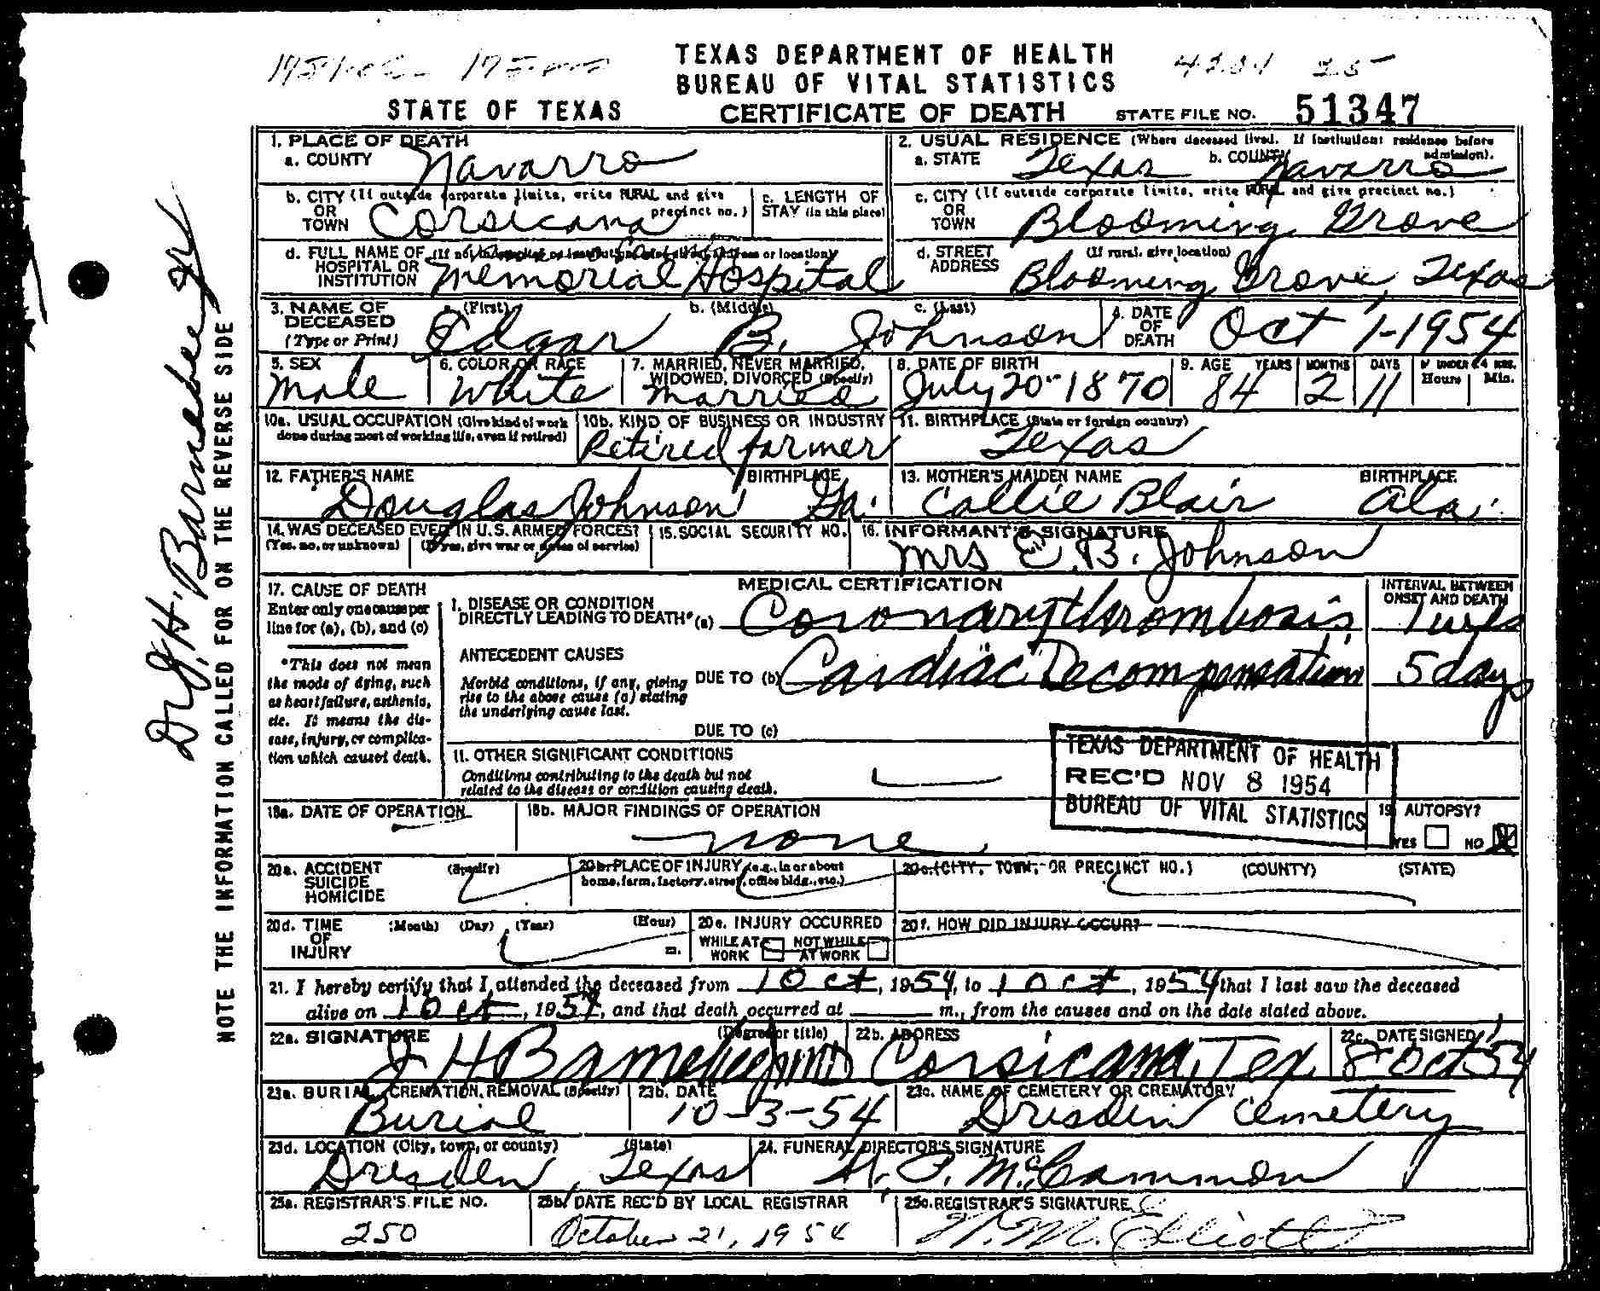 TEXAS DEPARTMENT OF HEALTH
BUREAU OF VITAL STATISTICS
4201 25
STATE OF TEXAS CERTIFICATE OF DEATH STATE FILE NO. 51347
1. PLACE OF DEATH
a. COUNTY Navarro
2. USUAL RESIDENCE (Where deceased lived. If institution: residence before admission).
a. STATE Texas b. COUNTY Navarro
b. CITY (If outside corporate limits, write RURAL and give precinct no.) OR TOWN Corsicana
c. LENGTH OF STAY (in this place)
c. CITY (If outside corporate limits, write RURAL and give precinct no.) OR TOWN Blooming Grove
d. FULL NAME OF HOSPITAL OR INSTITUTION (If not in hospital or institution, give street address or location) Memorial Hospital
d. STREET ADDRESS (If rural, give location) Blooming Grove, Texas
3. NAME OF DECEASED (Type or Print) a. (First) Edgar b. (Middle) B. c. (Last) Johnson
4. DATE OF DEATH Oct 1-1954
5. SEX Male
6. COLOR OR RACE White
7. MARRIED, NEVER MARRIED, WIDOWED, DIVORCED (Specify) Married
8. DATE OF BIRTH July 20-1870
9. AGE YEARS 84 MONTHS 2 DAYS 11 IF UNDER 24 HRS. Hours Min.
10a. USUAL OCCUPATION (Give kind of work done during most of working life, even if retired)
10b. KIND OF BUSINESS OR INDUSTRY Retired farmer
11. BIRTHPLACE (State or foreign country) Texas
12. FATHER'S NAME Douglas Johnson BIRTHPLACE Ga.
13. MOTHER'S MAIDEN NAME Callie Blair BIRTHPLACE Ala.
14. WAS DECEASED EVER IN U.S. ARMED FORCES? (Yes, no, or unknown) (If yes, give war or dates of service)
15. SOCIAL SECURITY NO.
16. INFORMANT'S SIGNATURE Mrs E. B. Johnson
17. CAUSE OF DEATH
Enter only one cause per line for (a), (b), and (c)
*This does not mean the mode of dying, such as heart failure, asthenia, etc. It means the disease, injury, or complication which caused death.
MEDICAL CERTIFICATION
INTERVAL BETWEEN ONSET AND DEATH
I. DISEASE OR CONDITION DIRECTLY LEADING TO DEATH* (a) Coronary thrombosis 1 wk
ANTECEDENT CAUSES
Morbid conditions, if any, giving rise to the above cause (a) stating the underlying cause last.
DUE TO (b) Cardiac Decompensation 5 days
DUE TO (c)
II. OTHER SIGNIFICANT CONDITIONS
Conditions contributing to the death but not related to the disease or condition causing death.
TEXAS DEPARTMENT OF HEALTH
REC'D NOV 8 1954
BUREAU OF VITAL STATISTICS
18a. DATE OF OPERATION
18b. MAJOR FINDINGS OF OPERATION none
19. AUTOPSY? YES NO
20a. ACCIDENT SUICIDE HOMICIDE (Specify)
20b. PLACE OF INJURY (e.g., in or about home, farm, factory, street, office bldg., etc.)
20c. (CITY, TOWN, OR PRECINCT NO.) (COUNTY) (STATE)
20d. TIME OF INJURY (Month) (Day) (Year) (Hour) m.
20e. INJURY OCCURRED WHILE AT WORK NOT WHILE AT WORK
20f. HOW DID INJURY OCCUR?
21. I hereby certify that I attended the deceased from 1 Oct, 1954, to 1 Oct, 1954 that I last saw the deceased
alive on 1 Oct, 1954, and that death occurred at m., from the causes and on the date stated above.
22a. SIGNATURE (Degree or title) J H Barnebee Jr MD
22b. ADDRESS Corsicana, Tex.
22c. DATE SIGNED 8 Oct '54
23a. BURIAL, CREMATION, REMOVAL (Specify) Burial
23b. DATE 10-3-54
23c. NAME OF CEMETERY OR CREMATORY Dresden Cemetery
23d. LOCATION (City, town, or county) (State) Dresden, Texas
24. FUNERAL DIRECTOR'S SIGNATURE H. P. McCammon
25a. REGISTRAR'S FILE NO. 250
25b. DATE REC'D BY LOCAL REGISTRAR October 21, 1954
25c. REGISTRAR'S SIGNATURE W. M. Elliott
NOTE THE INFORMATION CALLED FOR ON THE REVERSE SIDE
Dr J. H. Barnebee Jr